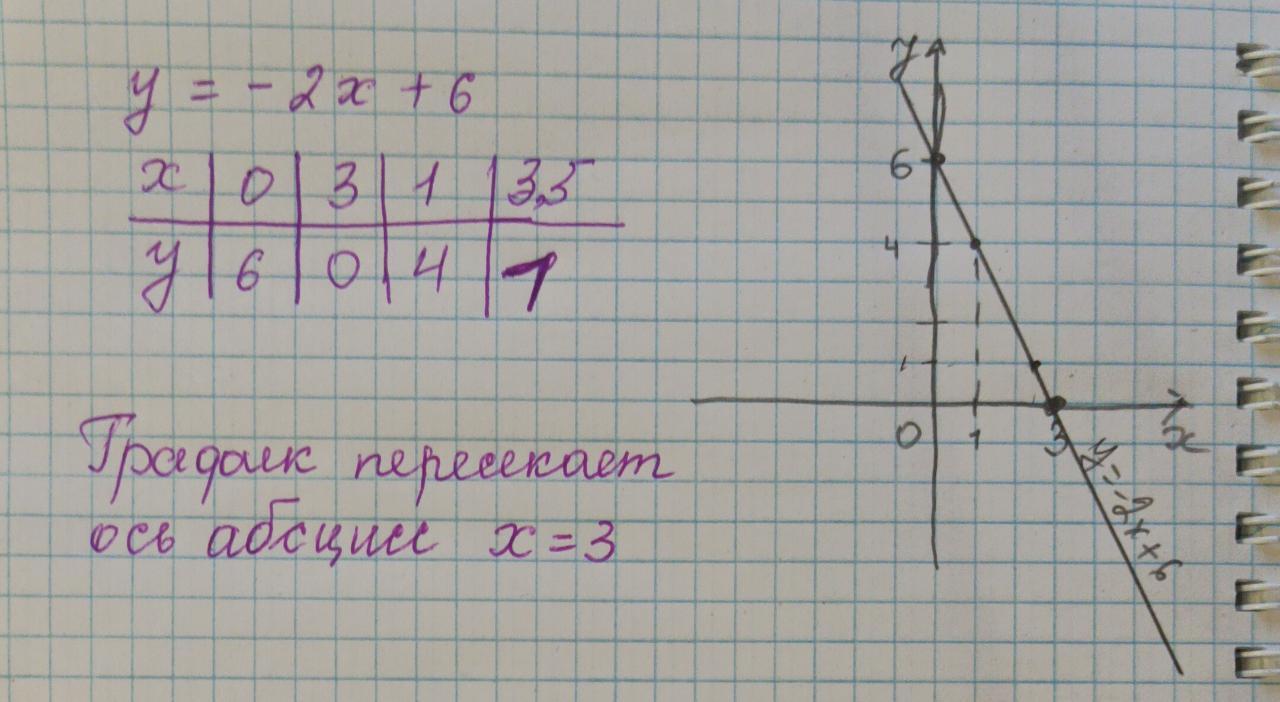 y = -2x + 6
x | 0 | 3 | 1 | 3,5
y | 6 | 0 | 4 | 1
График пересекает
ось абсцисс x = 3
y
6
4
1
0 1 3 x
y = -2x + 6